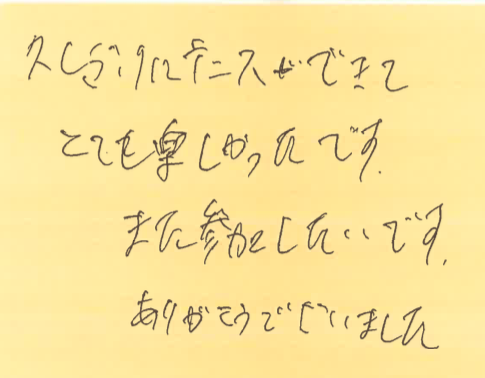 久しぶりにテニスができて
とても楽しかったです.
また参加したいです.
ありがとうございました